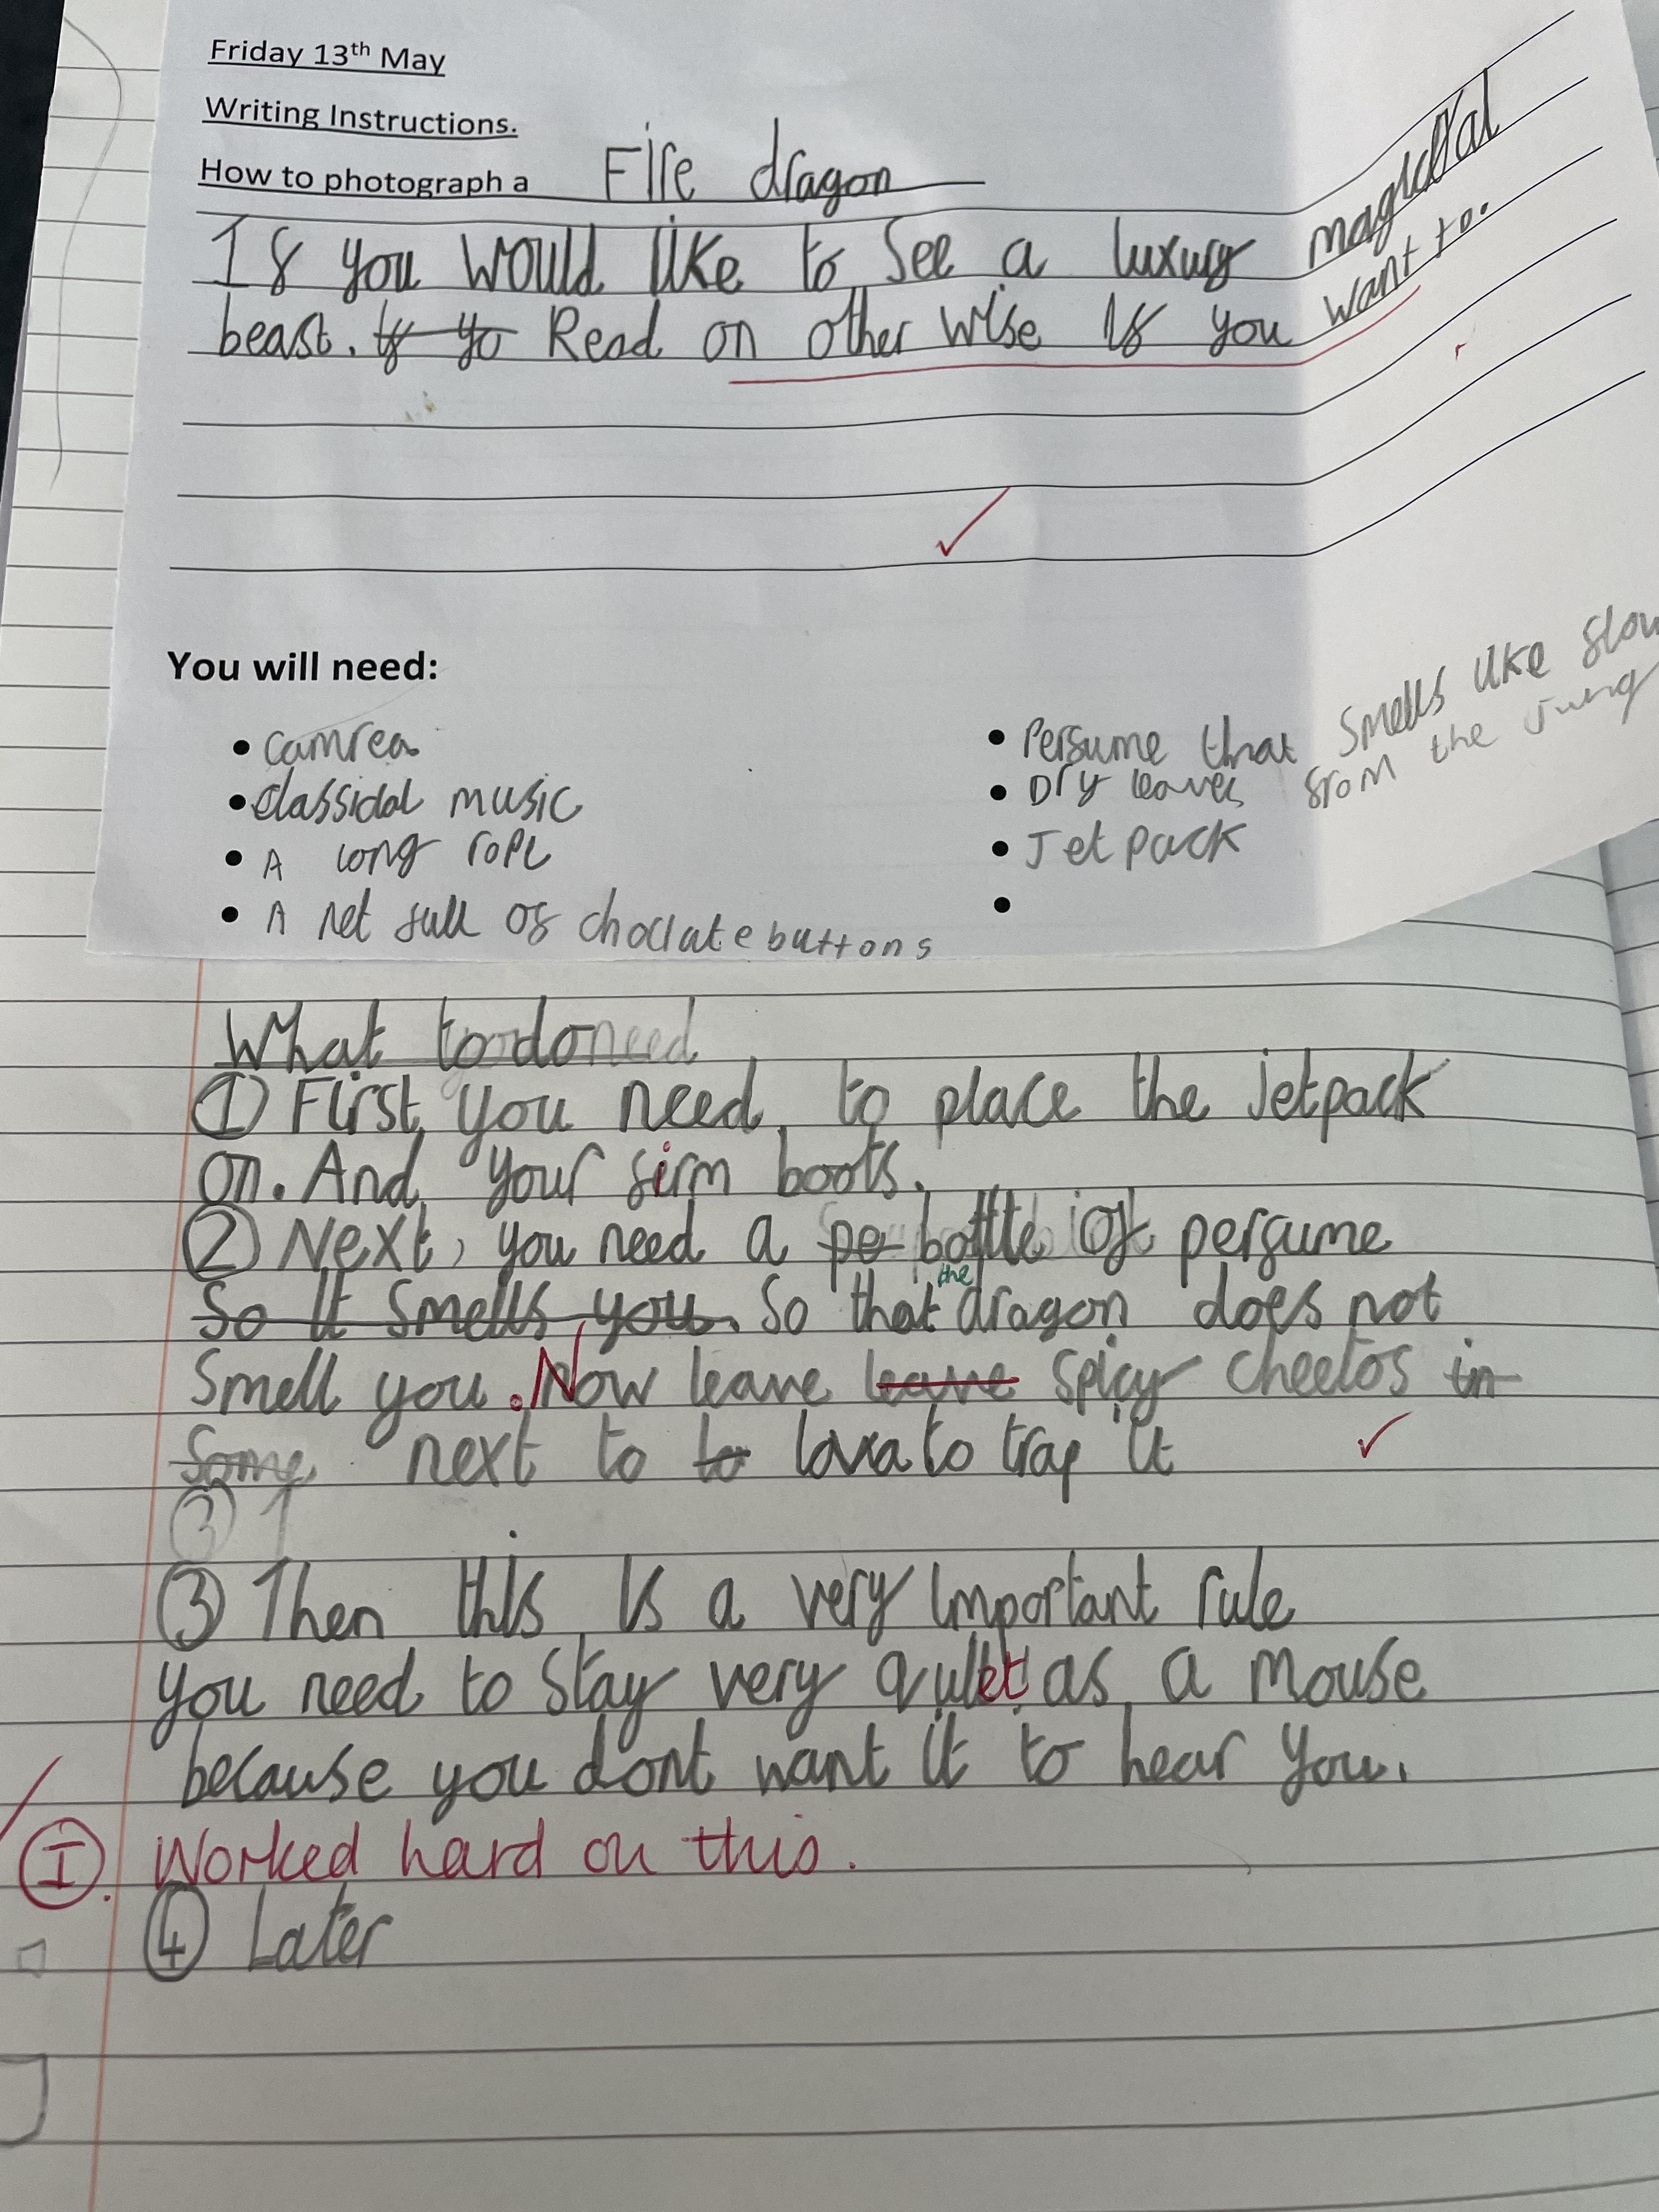 Friday 13th May
Writing Instructions.
How to photograph a Fire dragon
If you would like to see a luxury magical
beast. If yo Read on other wise If you want to.
You will need:
• camrea
• classical music
• A long rope
• A net full of choclate buttons
• Perfume that smells like flow
from the Jung
• Dry leaves
• Jet pack
•
What to do
① First you need to place the jetpack
on. And your firm boots.
② Next, you need a pe bottle of perfume
So it smells you. So that the dragon does not
smell you. Now leave leave spicy cheetos in
some next to to lava to trap it
③ T
③ Then this is a very important rule
you need to stay very quiet as a mouse
because you dont want it to hear you.
Ⓘ. Worked hard on this.
④ Later